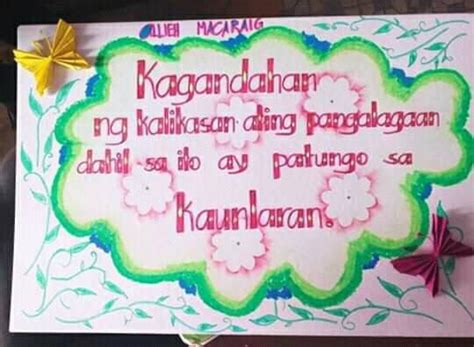 OLLIEH MACARAIG
Kagandahan
ng kalikasan ating pangalagaan
dahil sa ito ay patungo sa
Kaunlaran.